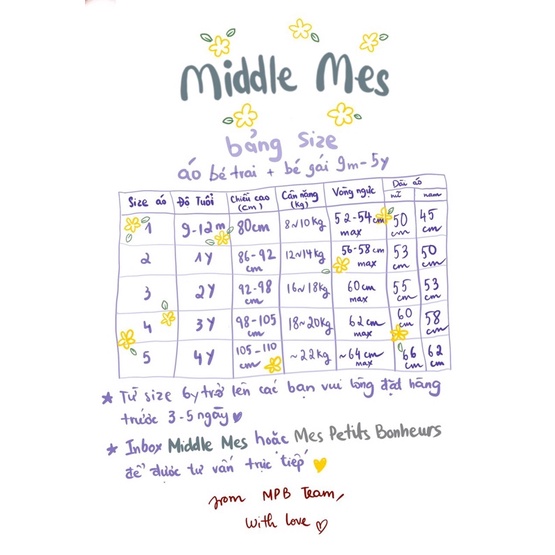 Middle Mes
bảng size
áo bé trai + bé gái 9m-5y
Size áo Độ Tuổi Chiều cao (cm) Cân nặng (kg) Vòng ngực Dài áo
nữ nam
1 9-12m 80cm 8~10kg 52-54cm max 50 cm 45 cm
2 1Y 86-92 cm 12~14kg 56-58cm max 53 cm 50 cm
3 2Y 92-98 cm 16~18kg 60cm max 55 cm 53 cm
4 3Y 98-105 cm 18~20kg 62cm max 60 cm 58 cm
5 4Y 105-110 cm ~22kg ~64cm max 66 cm 62 cm
★ Từ size 6y trở lên các bạn vui lòng đặt hàng
trước 3-5 ngày
★ Inbox Middle Mes hoặc Mes Petits Bonheurs
để được tư vấn trực tiếp
from MPB Team,
With love